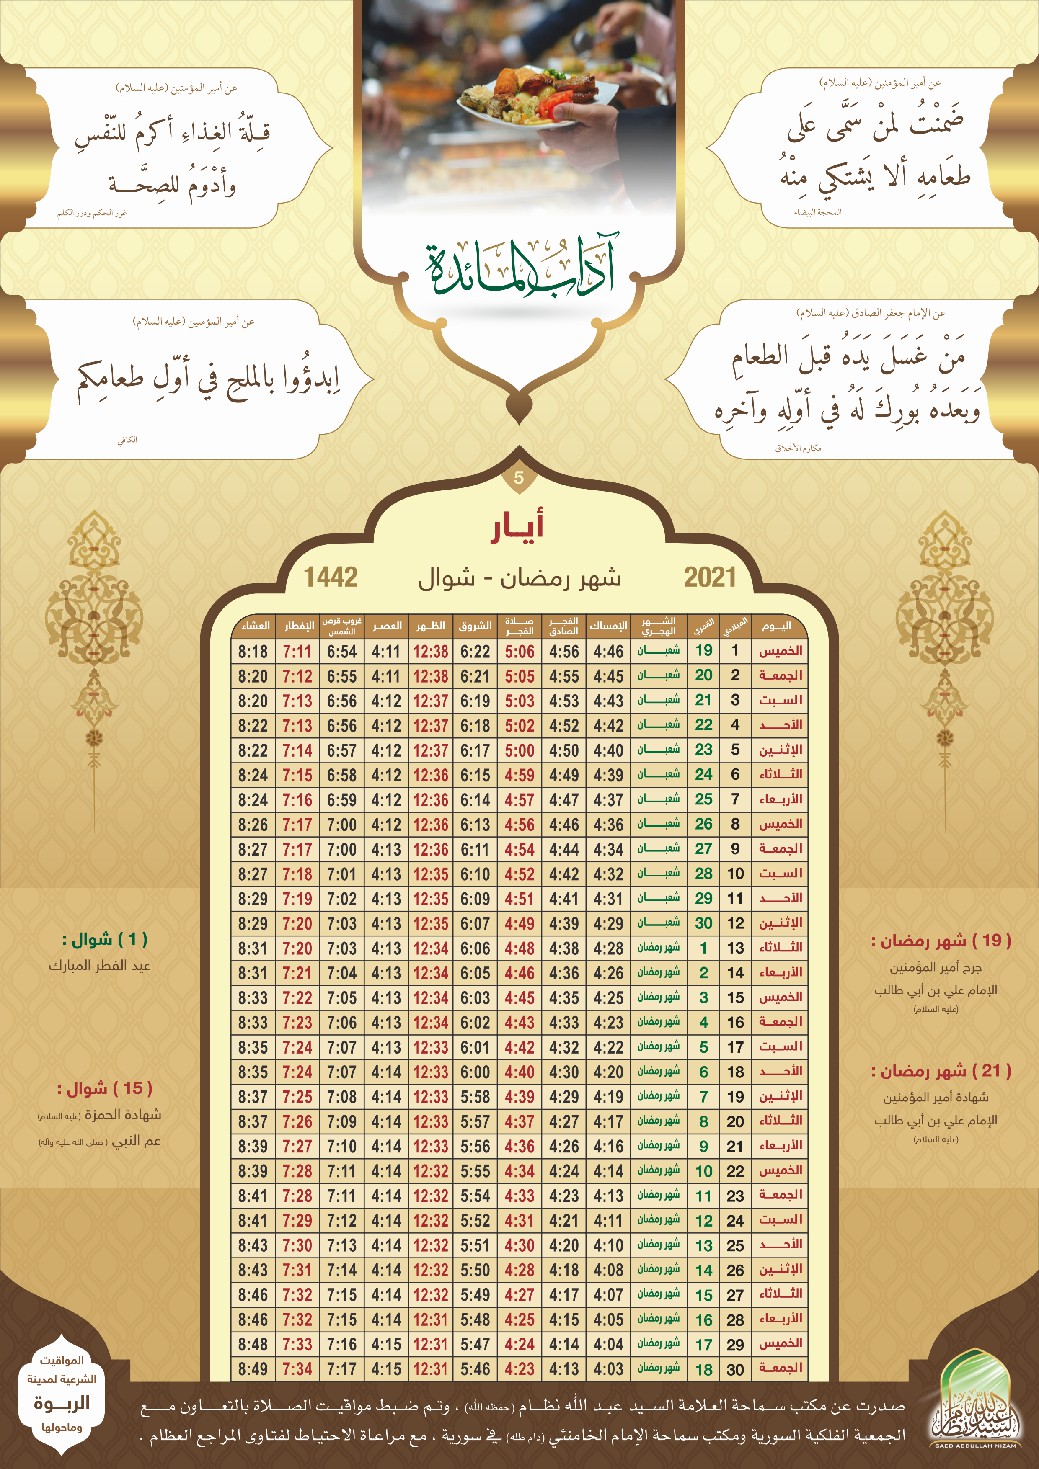 عن أمير المؤمنين (عليه السلام)
ضَمنْتُ لمنْ سَمَّى عَلَى
طعَامِهِ ألا يَشتكي مِنْهُ
المحجة البيضاء
عن أمير المؤمنين (عليه السلام)
قـِلّةُ الغِذاءِ أكرمُ للنّفْسِ
وأدْوَمُ للصِحَّـــة
غرر الحكم ودرر الكلم
آداب المائدة
عن الإمام جعفر الصادق (عليه السلام)
مَنْ غَسَلَ يَدَهُ قبلَ الطعامِ
وَبَعدَهُ بُورِكَ لَهُ في أوّلِهِ وآخرِه
مكارم الأخلاق
عن أمير المؤمنين (عليه السلام)
اِبدؤُوا بالملحِ في أوّلِ طعامِكم
الكافي
5
أيــار
2021 شهر رمضان - شوال 1442
اليــوم الميلادي القمري الشــهر الهجري الإمساك الفجــر الصادق صــلاة الفجــر الشروق الظــهر العصـر غروب قرص الشمس الإفطار العشاء
الخميس 1 19 شعبـــان 4:46 4:56 5:06 6:22 12:38 4:11 6:54 7:11 8:18
الجمعـة 2 20 شعبـــان 4:45 4:55 5:05 6:21 12:38 4:11 6:55 7:12 8:20
السـبت 3 21 شعبـــان 4:43 4:53 5:03 6:19 12:37 4:12 6:56 7:13 8:20
الأحــد 4 22 شعبـــان 4:42 4:52 5:02 6:18 12:37 4:12 6:56 7:13 8:22
الإثنـين 5 23 شعبـــان 4:40 4:50 5:00 6:17 12:37 4:12 6:57 7:14 8:22
الثـلاثاء 6 24 شعبـــان 4:39 4:49 4:59 6:15 12:36 4:12 6:58 7:15 8:24
الأربـعاء 7 25 شعبـــان 4:37 4:47 4:57 6:14 12:36 4:12 6:59 7:16 8:24
الخميس 8 26 شعبـــان 4:36 4:46 4:56 6:13 12:36 4:12 7:00 7:17 8:26
الجمعـة 9 27 شعبـــان 4:34 4:44 4:54 6:11 12:36 4:13 7:00 7:17 8:27
السـبت 10 28 شعبـــان 4:32 4:42 4:52 6:10 12:35 4:13 7:01 7:18 8:27
الأحــد 11 29 شعبـــان 4:31 4:41 4:51 6:09 12:35 4:13 7:02 7:19 8:29
الإثنـين 12 30 شعبـــان 4:29 4:39 4:49 6:07 12:35 4:13 7:03 7:20 8:29
الثـلاثاء 13 1 شهر رمضان 4:28 4:38 4:48 6:06 12:34 4:13 7:03 7:20 8:31
الأربـعاء 14 2 شهر رمضان 4:26 4:36 4:46 6:05 12:34 4:13 7:04 7:21 8:31
الخميس 15 3 شهر رمضان 4:25 4:35 4:45 6:03 12:34 4:13 7:05 7:22 8:33
الجمعـة 16 4 شهر رمضان 4:23 4:33 4:43 6:02 12:34 4:13 7:06 7:23 8:33
السـبت 17 5 شهر رمضان 4:22 4:32 4:42 6:01 12:33 4:13 7:07 7:24 8:35
الأحــد 18 6 شهر رمضان 4:20 4:30 4:40 6:00 12:33 4:14 7:07 7:24 8:35
الإثنـين 19 7 شهر رمضان 4:19 4:29 4:39 5:58 12:33 4:14 7:08 7:25 8:37
الثـلاثاء 20 8 شهر رمضان 4:17 4:27 4:37 5:57 12:33 4:14 7:09 7:26 8:37
الأربـعاء 21 9 شهر رمضان 4:16 4:26 4:36 5:56 12:33 4:14 7:10 7:27 8:39
الخميس 22 10 شهر رمضان 4:14 4:24 4:34 5:55 12:32 4:14 7:11 7:28 8:39
الجمعـة 23 11 شهر رمضان 4:13 4:23 4:33 5:54 12:32 4:14 7:11 7:28 8:41
السـبت 24 12 شهر رمضان 4:11 4:21 4:31 5:52 12:32 4:14 7:12 7:29 8:41
الأحــد 25 13 شهر رمضان 4:10 4:20 4:30 5:51 12:32 4:14 7:13 7:30 8:43
الإثنـين 26 14 شهر رمضان 4:08 4:18 4:28 5:50 12:32 4:14 7:14 7:31 8:43
الثـلاثاء 27 15 شهر رمضان 4:07 4:17 4:27 5:49 12:32 4:14 7:15 7:32 8:46
الأربـعاء 28 16 شهر رمضان 4:05 4:15 4:25 5:48 12:31 4:14 7:15 7:32 8:46
الخميس 29 17 شهر رمضان 4:04 4:14 4:24 5:47 12:31 4:15 7:16 7:33 8:48
الجمعـة 30 18 شهر رمضان 4:03 4:13 4:23 5:46 12:31 4:15 7:17 7:34 8:49
( 19 ) شهر رمضان :
جرح أمير المؤمنين
الإمام علي بن أبي طالب
(عليه السلام)
( 21 ) شهر رمضان :
شهادة أمير المؤمنين
الإمام علي بن أبي طالب
(عليه السلام)
( 1 ) شوال :
عيد الفطر المبارك
( 15 ) شوال :
شهادة الحمزة (عليه السلام)
عم النبي (صلى الله عليه وآله)
صدرت عن مكتب سماحة العلامة السيد عبد الله نظـام (حفظه الله) ، وتم ضبط مواقيت الصلاة بالتعاون مـع
الجمعية الفلكية السورية ومكتب سماحة الإمام الخامنئي (دام ظله) في سورية ، مع مراعاة الاحتياط لفتاوى المراجع العظام .
المواقيت
الشرعية لمدينة
الربــوة
وماحولها
السيد عبد الله نظام
SAED ABDULLAH NIZAM